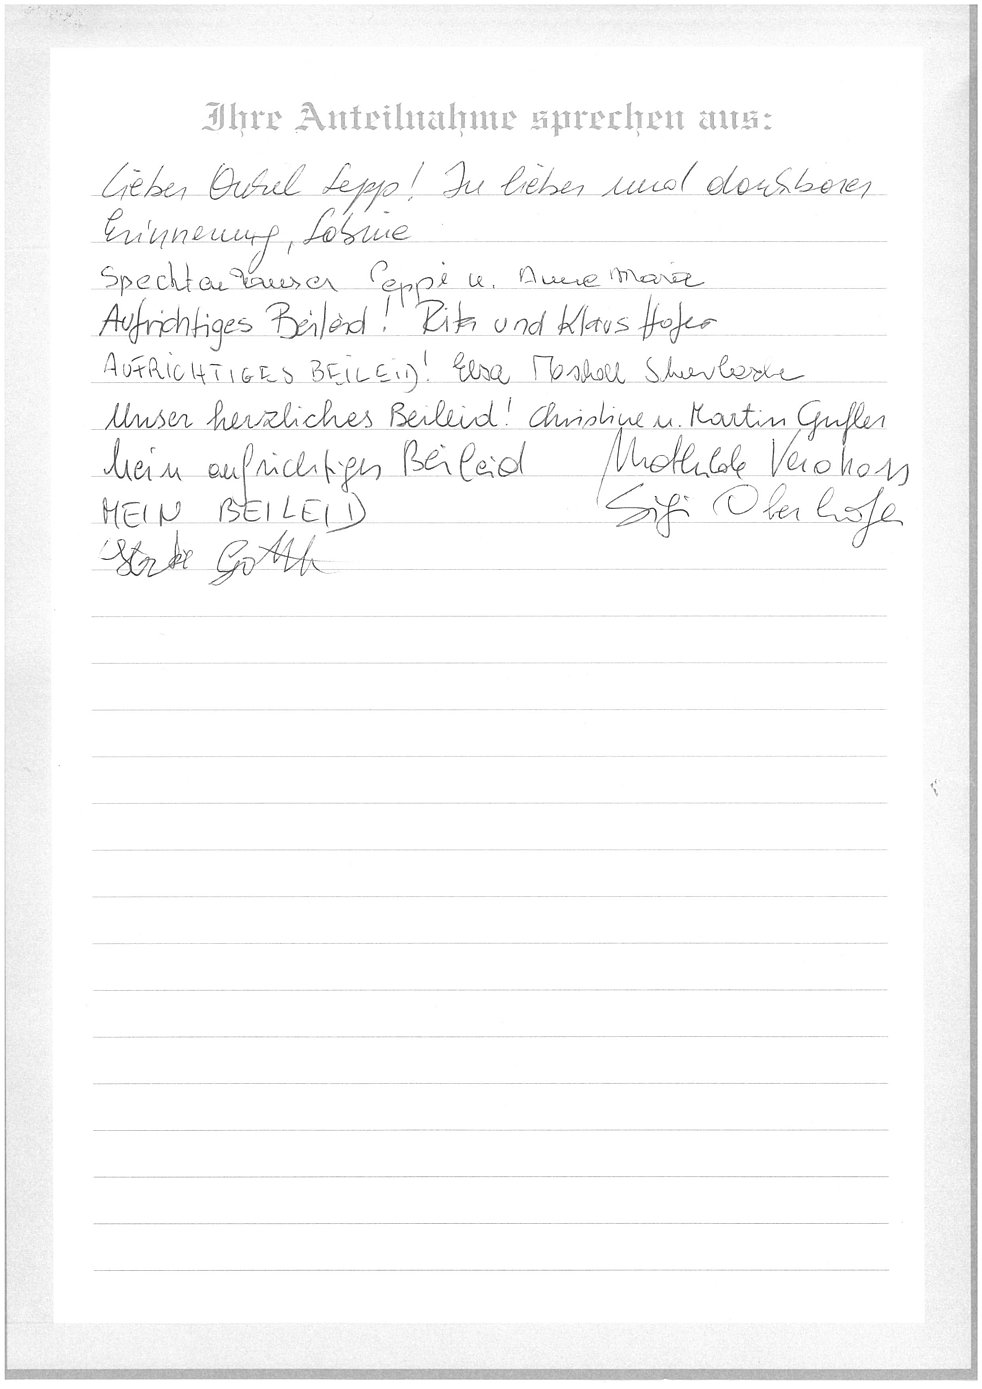 Ihre Anteilnahme sprechen aus:
Lieber Onkel Sepp! In lieber und dankbarer
Erinnerung, Sabine
Spechtenhauser Seppi u. Anne Maria
Aufrichtiges Beileid! Rita und Klaus Hofer
AUFRICHTIGES BEILEID! Elsa
Unser herzliches Beileid! Christine u. Martin Gufler
Mein aufrichtiges Beileid Mathilde
MEIN BEILEID Sigi Oberhofer